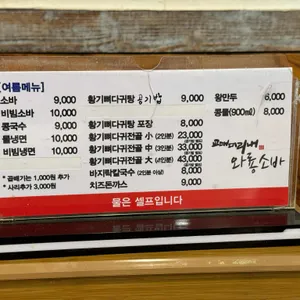 [여름메뉴]
소바 9,000
비빔소바 10,000
콩국수 9,000
물냉면 10,000
비빔냉면 10,000
* 곱빼기는 1,000원 추가
* 사리추가 3,000원
황기뼈다귀탕 공기밥 9,000
황기뼈다귀탕 포장 8,000
황기뼈다귀전골 小 (2인분) 23,000
황기뼈다귀전골 中 (3인분) 33,000
황기뼈다귀전골 大 (4인분) 43,000
바지락칼국수 (2인분 이상) 8,000
치즈돈까스 9,000
왕만두 6,000
콩물(900㎖) 8,000
와룡소바
물은 셀프입니다